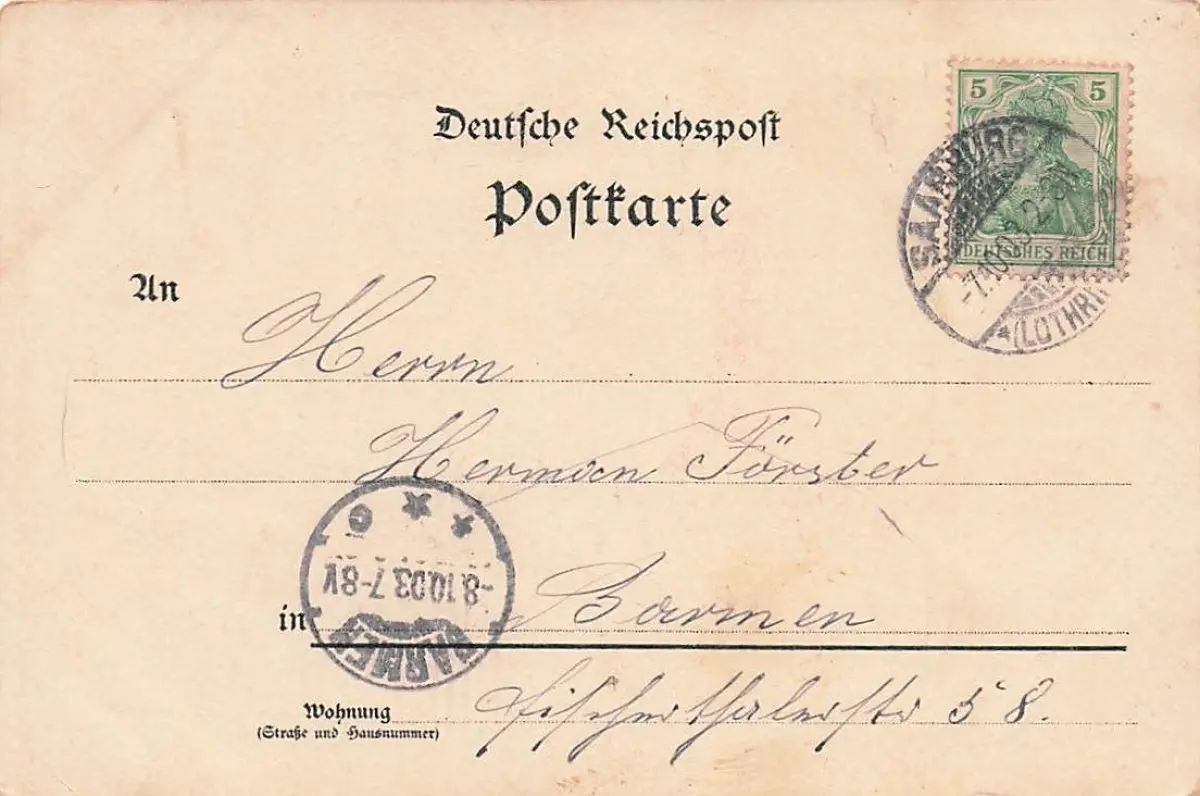 5 5
DEUTSCHES REICH
SAARBURG
-7.10.03.2-3N
*(LOTHR
Deutsche Reichspost
Postkarte
An
Herrn
Herman Förster
BARMEN
-8.10.03.7-8V
* * c
in Barmen
Wohnung
(Straße und Hausnummer)
Fischerthalerstr 58.